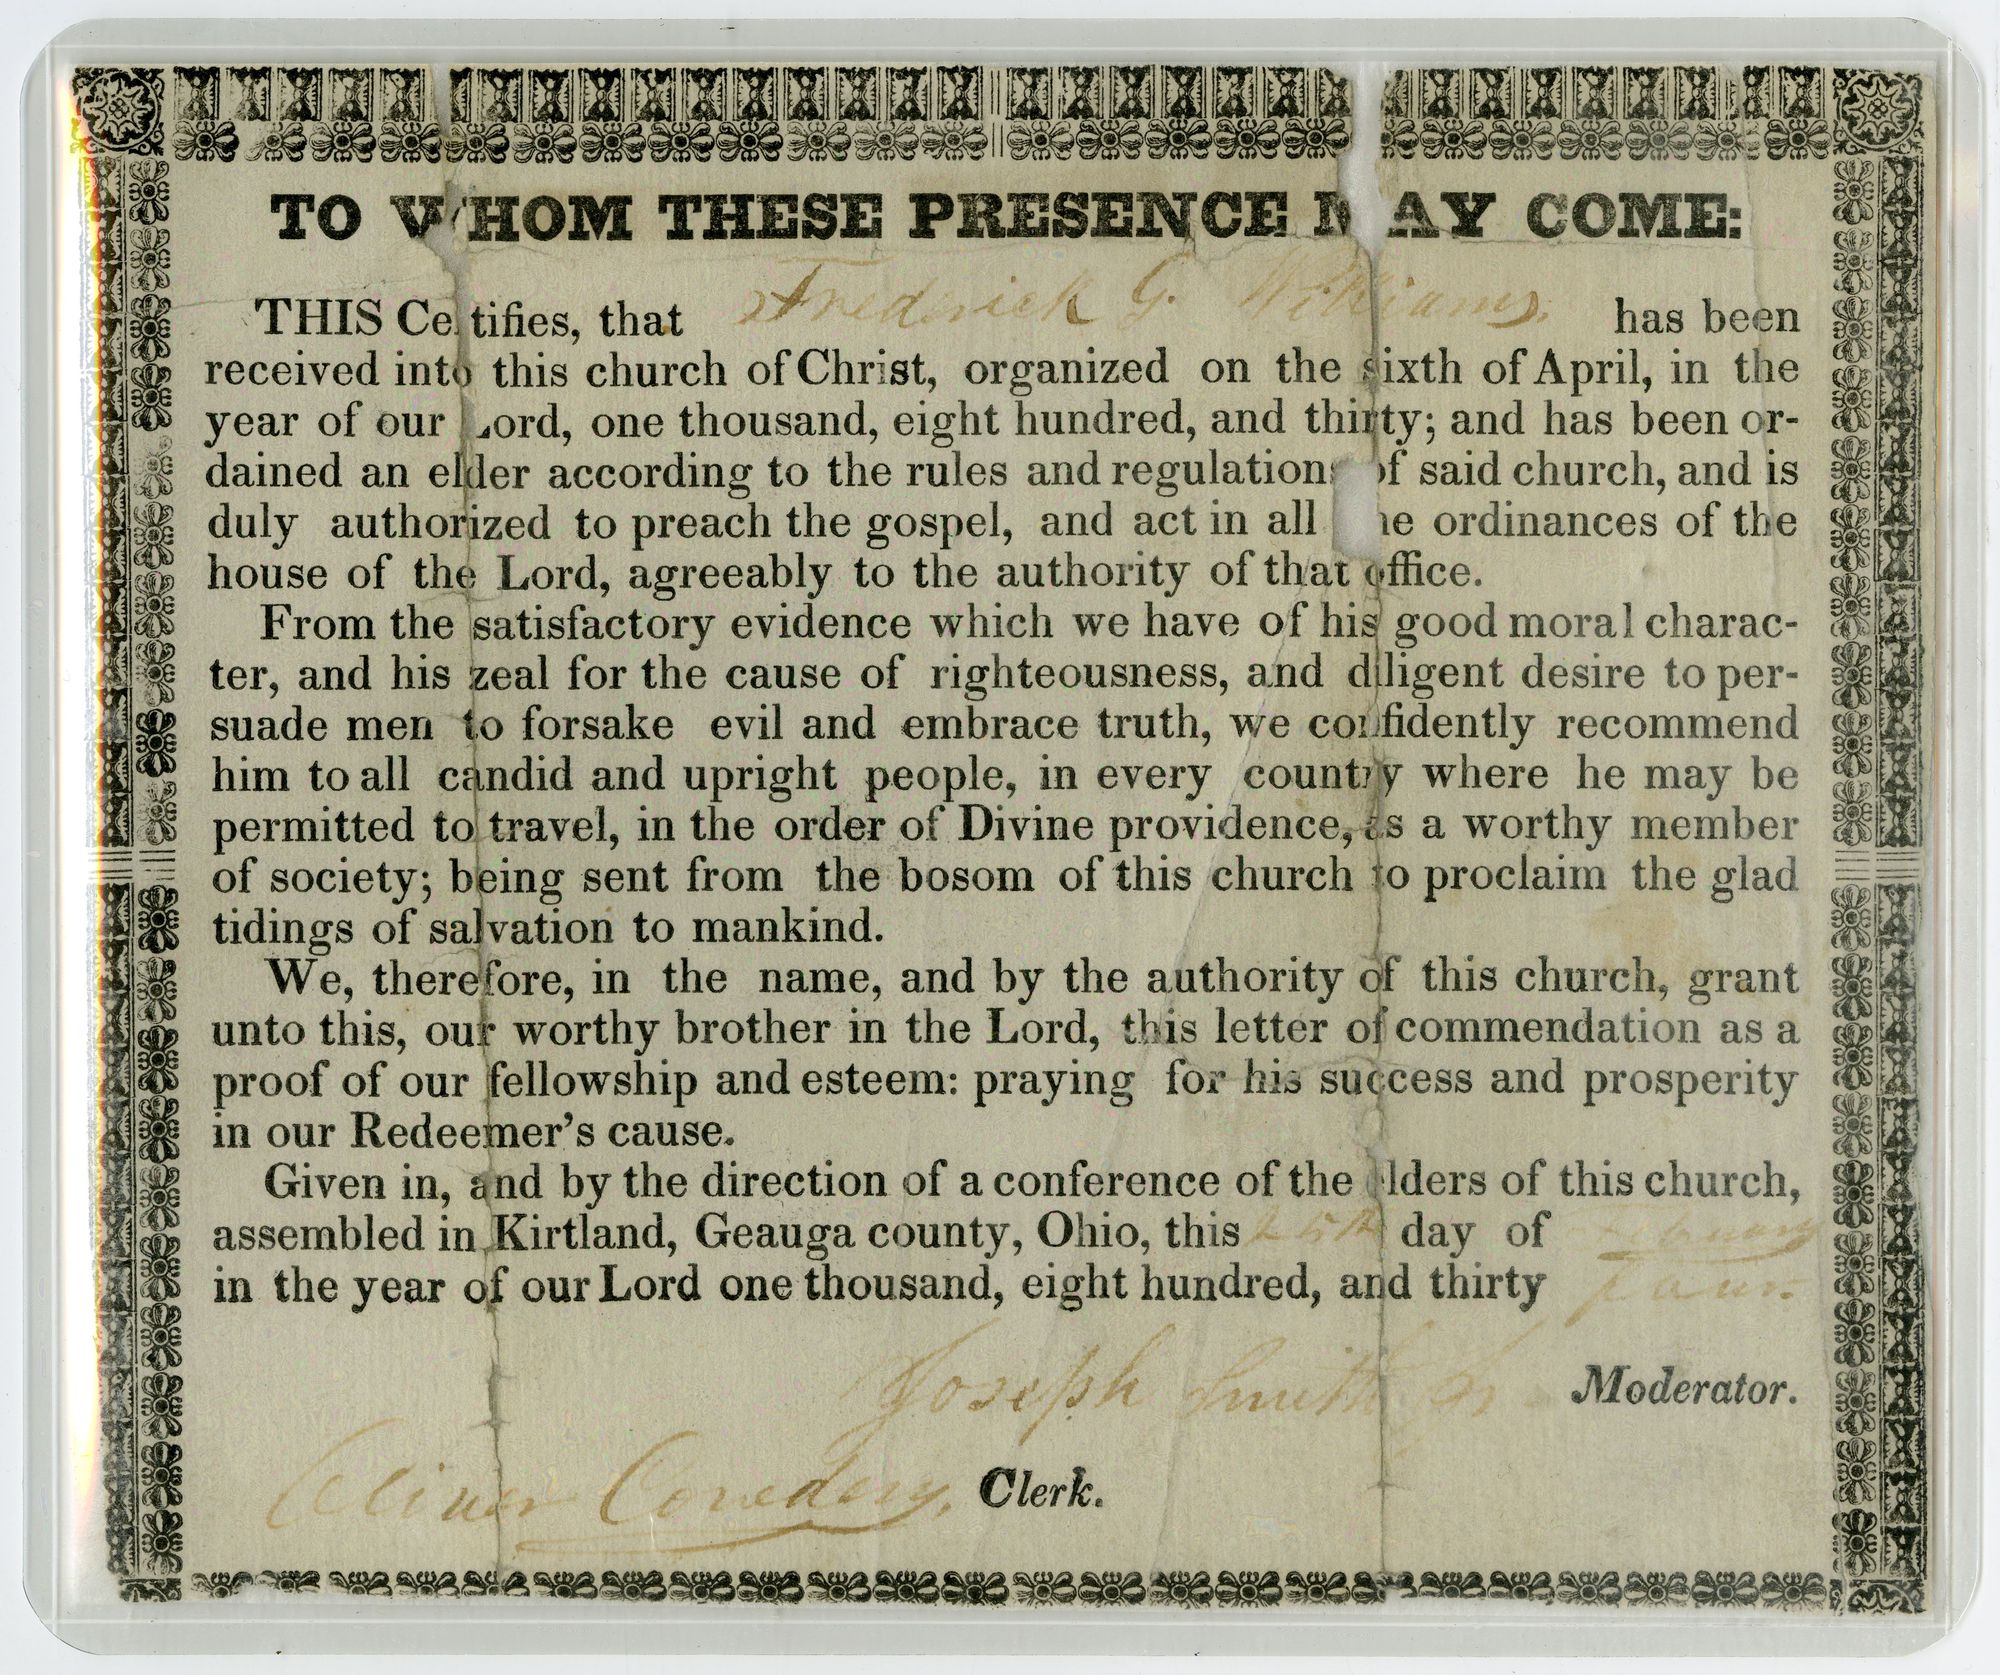 TO WHOM THESE PRESENCE MAY COME:
THIS Certifies, that Frederick G. Williams. has been
received into this church of Christ, organized on the sixth of April, in the
year of our Lord, one thousand, eight hundred, and thirty; and has been or-
dained an elder according to the rules and regulations of said church, and is
duly authorized to preach the gospel, and act in all the ordinances of the
house of the Lord, agreeably to the authority of that office.
From the satisfactory evidence which we have of his good moral charac-
ter, and his zeal for the cause of righteousness, and diligent desire to per-
suade men to forsake evil and embrace truth, we confidently recommend
him to all candid and upright people, in every country where he may be
permitted to travel, in the order of Divine providence, as a worthy member
of society; being sent from the bosom of this church to proclaim the glad
tidings of salvation to mankind.
We, therefore, in the name, and by the authority of this church, grant
unto this, our worthy brother in the Lord, this letter of commendation as a
proof of our fellowship and esteem: praying for his success and prosperity
in our Redeemer's cause.
Given in, and by the direction of a conference of the elders of this church,
assembled in Kirtland, Geauga county, Ohio, this 25th day of February
in the year of our Lord one thousand, eight hundred, and thirty four.
Joseph Smith Jr. Moderator.
Oliver Cowdery, Clerk.